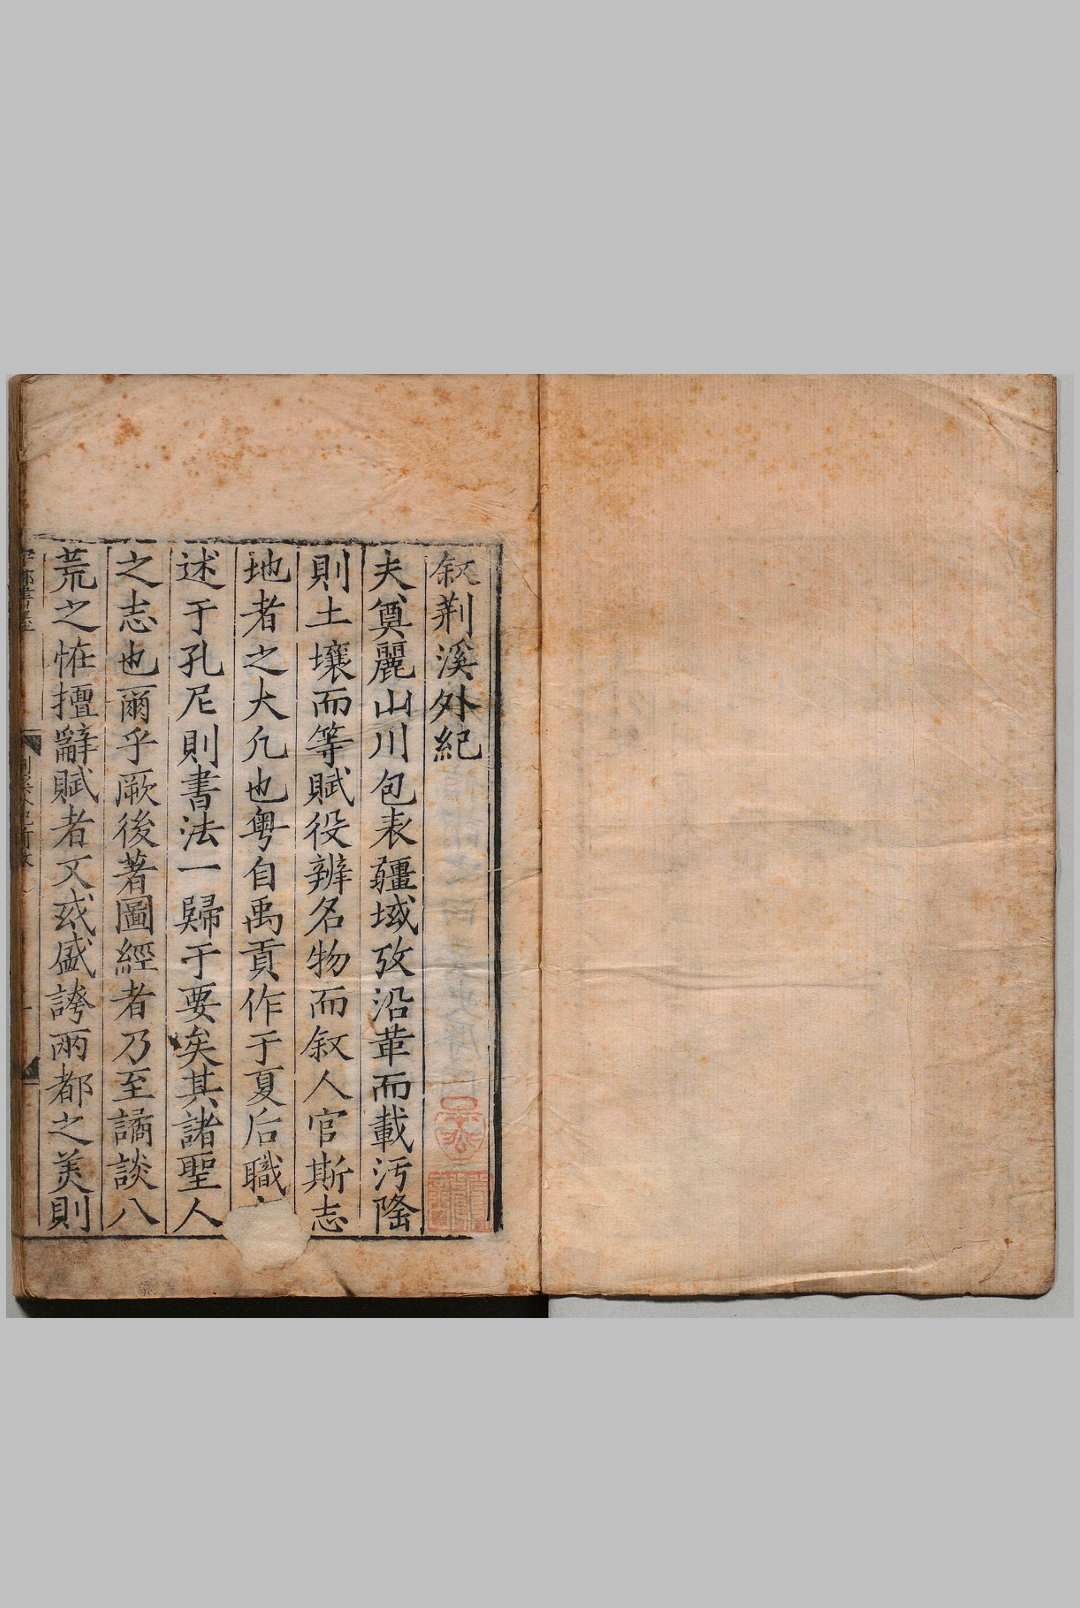 叙荆溪外紀
夫奠麗山川包表疆域攷沿革而載汚隆
則土壤而等賦役辨名物而叙人官斯志
地者之大凡也粤自禹貢作于夏后職
述于孔尼則書法一歸于要矣其諸聖人
之志也爾乎厥後著圖經者乃至譎談八
荒之恠擅辭賦者又或盛誇兩都之美則